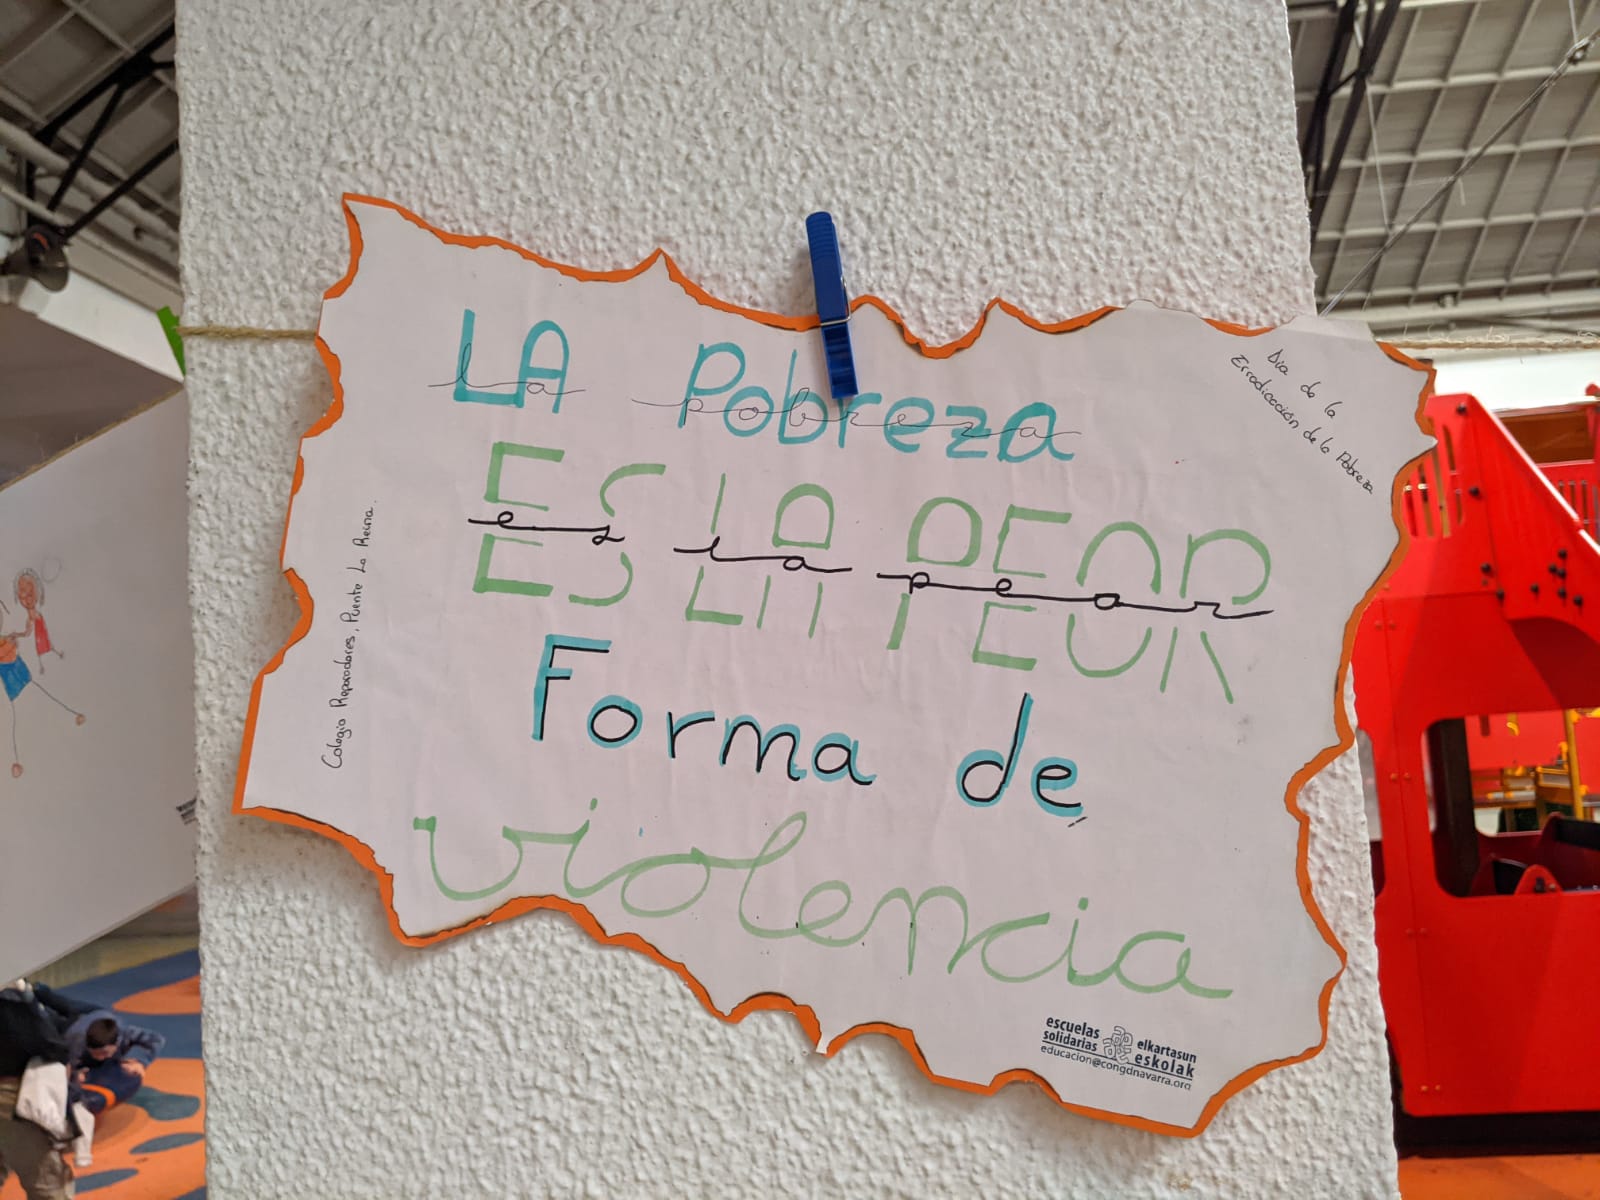 LA Pobreza
la pobreza
ES LA PEOR
es la peor
Forma de
violencia
Día de la
Erradicación de la Pobreza
Colegio Reparadores, Puente La Reina.
escuelas solidarias
elkartasun eskolak
educacion@congdnavarra.org